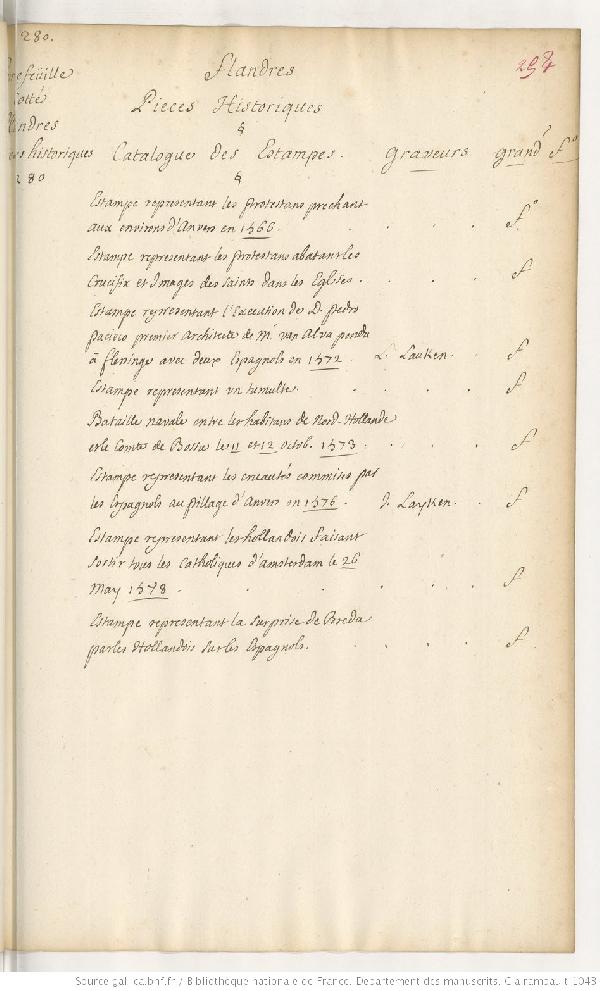 280.
Flandres
Pieces Historiques
historiques
280
Catalogue des Estampes. graveurs grand fo
Estampe representant les protestans prechant
aux environs d'Anvers en 1566. fo
Estampe representant les protestans abatans les
Crucifix et Images des saints dans les Eglises. f
Estampe representant l'Execution de D. pedro
pacieco premier Architecte de mr. van Alva pendu
à flessinge avec deux Espagnols en 1572. L. Lauken. f
Estampe representant un tumulte. f
Bataille navale entre les habitans de Nord-Hollande
et le Comte de Bossu le 11 et 12 octob. 1573. f
Estampe representant les cruautés commises par
les Espagnols au pillage d'Anvers en 1576. J. Layken. f
Estampe representant les hollandois faisant
sortir tous les Catholiques d'amsterdam le 26
May 1578. f
Estampe representant la surprise de Breda
par les Hollandois sur les Espagnols. f
Source gallica.bnf.fr / Bibliothèque nationale de France. Département des manuscrits. Clairambault 1043